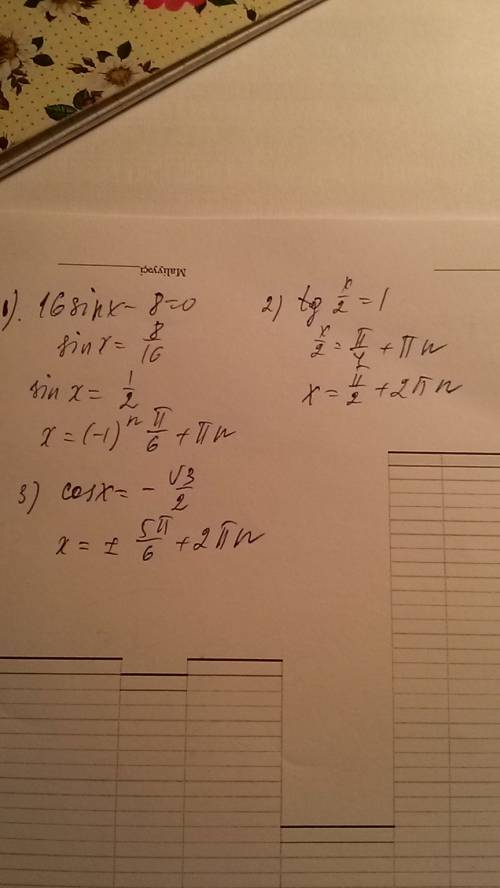 Maliyyəçi
1). 16sinx - 8=0
sinx = 8/16
sin x = 1/2
x = (-1)^n π/6 + πn
2) tg x/2 = 1
x/2 = π/4 + πn
x = π/2 + 2πn
3) cosx = - √3/2
x = ± 5π/6 + 2πn